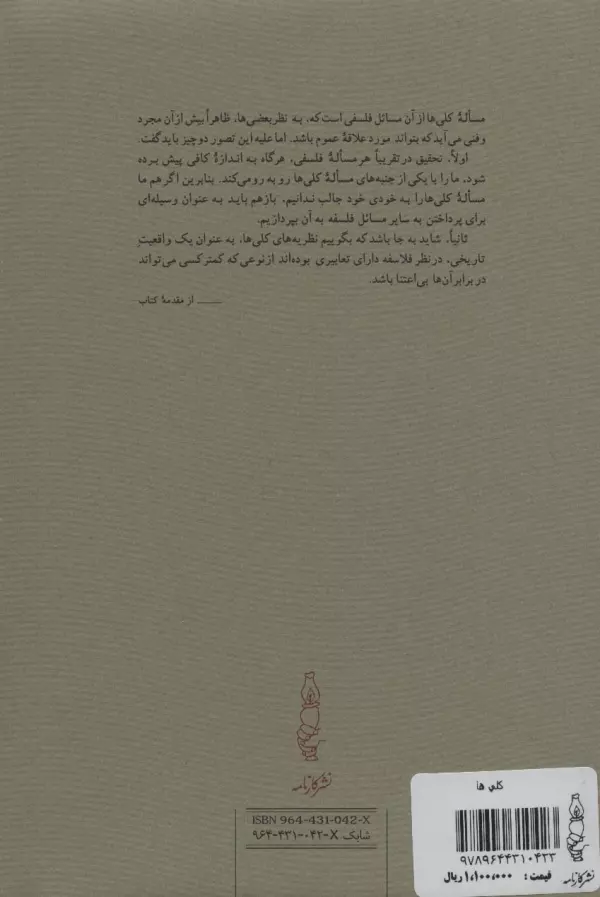 مسألهٔ کلی‌ها از آن مسائل فلسفی است که، به نظر بعضی‌ها، ظاهراً بیش از آن مجرد
و فنی می‌آید که بتواند مورد علاقهٔ عموم باشد. اما علیه این تصور دو چیز باید گفت.
اولاً، تحقیق در تقریباً هر مسألهٔ فلسفی، هرگاه به اندازهٔ کافی پیش برده
شود، ما را با یکی از جنبه‌های مسألهٔ کلی‌ها رو به رو می‌کند. بنابرین اگر هم ما
مسألهٔ کلی‌ها را به خودی خود جالب ندانیم، باز هم باید به عنوان وسیله‌ای
برای پرداختن به سایر مسائل فلسفه به آن بپردازیم.
ثانیاً، شاید به جا باشد که بگوییم نظریه‌های کلی‌ها، به عنوان یک واقعیتِ
تاریخی، در نظر فلاسفه دارای تعابیری بوده‌اند از نوعی که کمتر کسی می‌تواند
در برابر آن‌ها بی‌اعتنا باشد.
ــــــ از مقدمهٔ کتاب
نشر کارنامه
ISBN 964-431-042-X
شابک ۹۶۴-۴۳۱-۰۴۲-X
کلی ها
۹۷۸۹۶۴۴۳۱۰۴۲۳
قیمت : ۱,۱۰۰,۰۰۰ ریال
نشر کارنامه